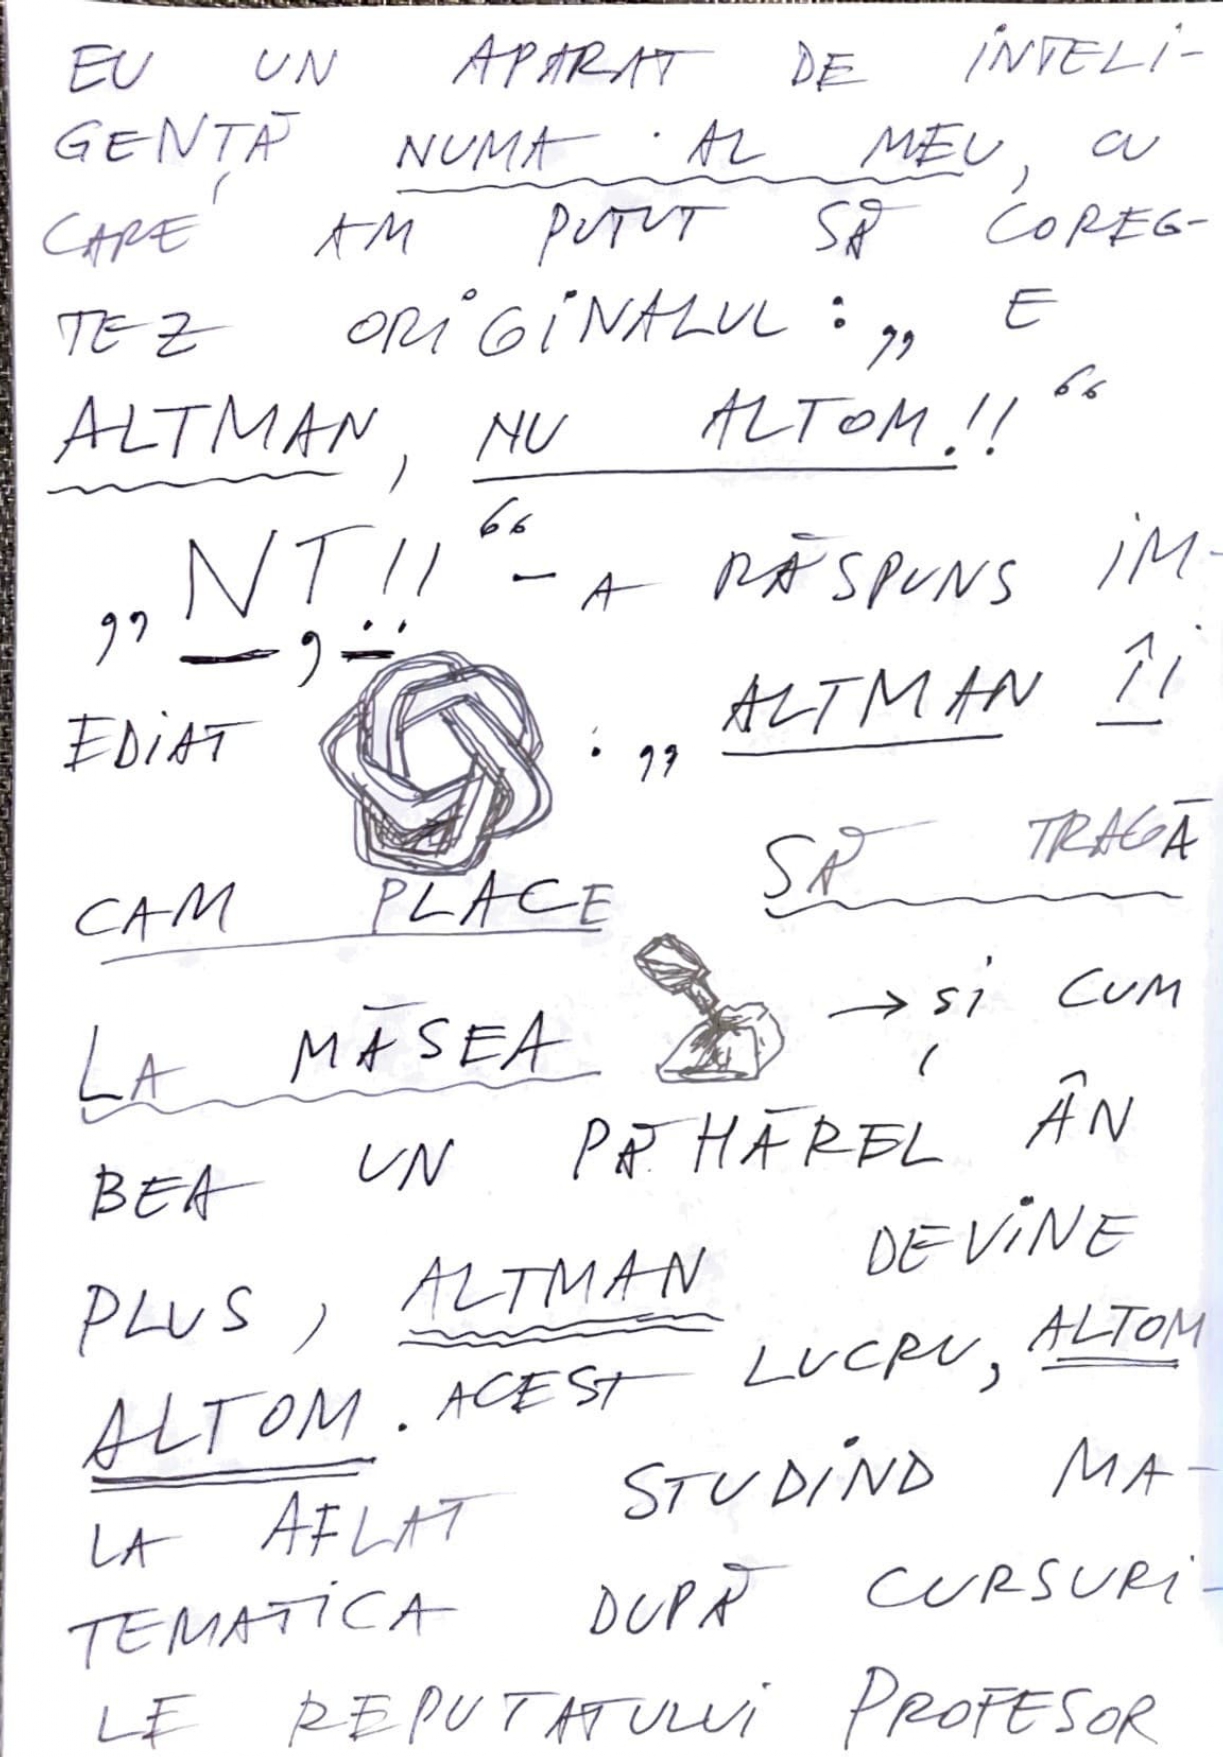 EU UN APARAT DE INTELI-
GENȚĂ NUMA AL MEU, CU
CARE AM PUTUT SĂ COREG-
TEZ ORIGINALUL: „ E
ALTMAN, NU ALTOM!!“
„NT!!“ - A RĂSPUNS IM-
EDIAT : „ALTMAN ÎI
CAM PLACE SĂ TRAGĂ
LA MĂSEA → ȘI CUM
BEA UN PĂHĂREL ÂN
PLUS, ALTMAN DEVINE
ALTOM. ACEST LUCRU, ALTOM
LA AFLAT STUDIND MA-
TEMATICA DUPĂ CURSURI-
LE REPUTATULUI PROFESOR